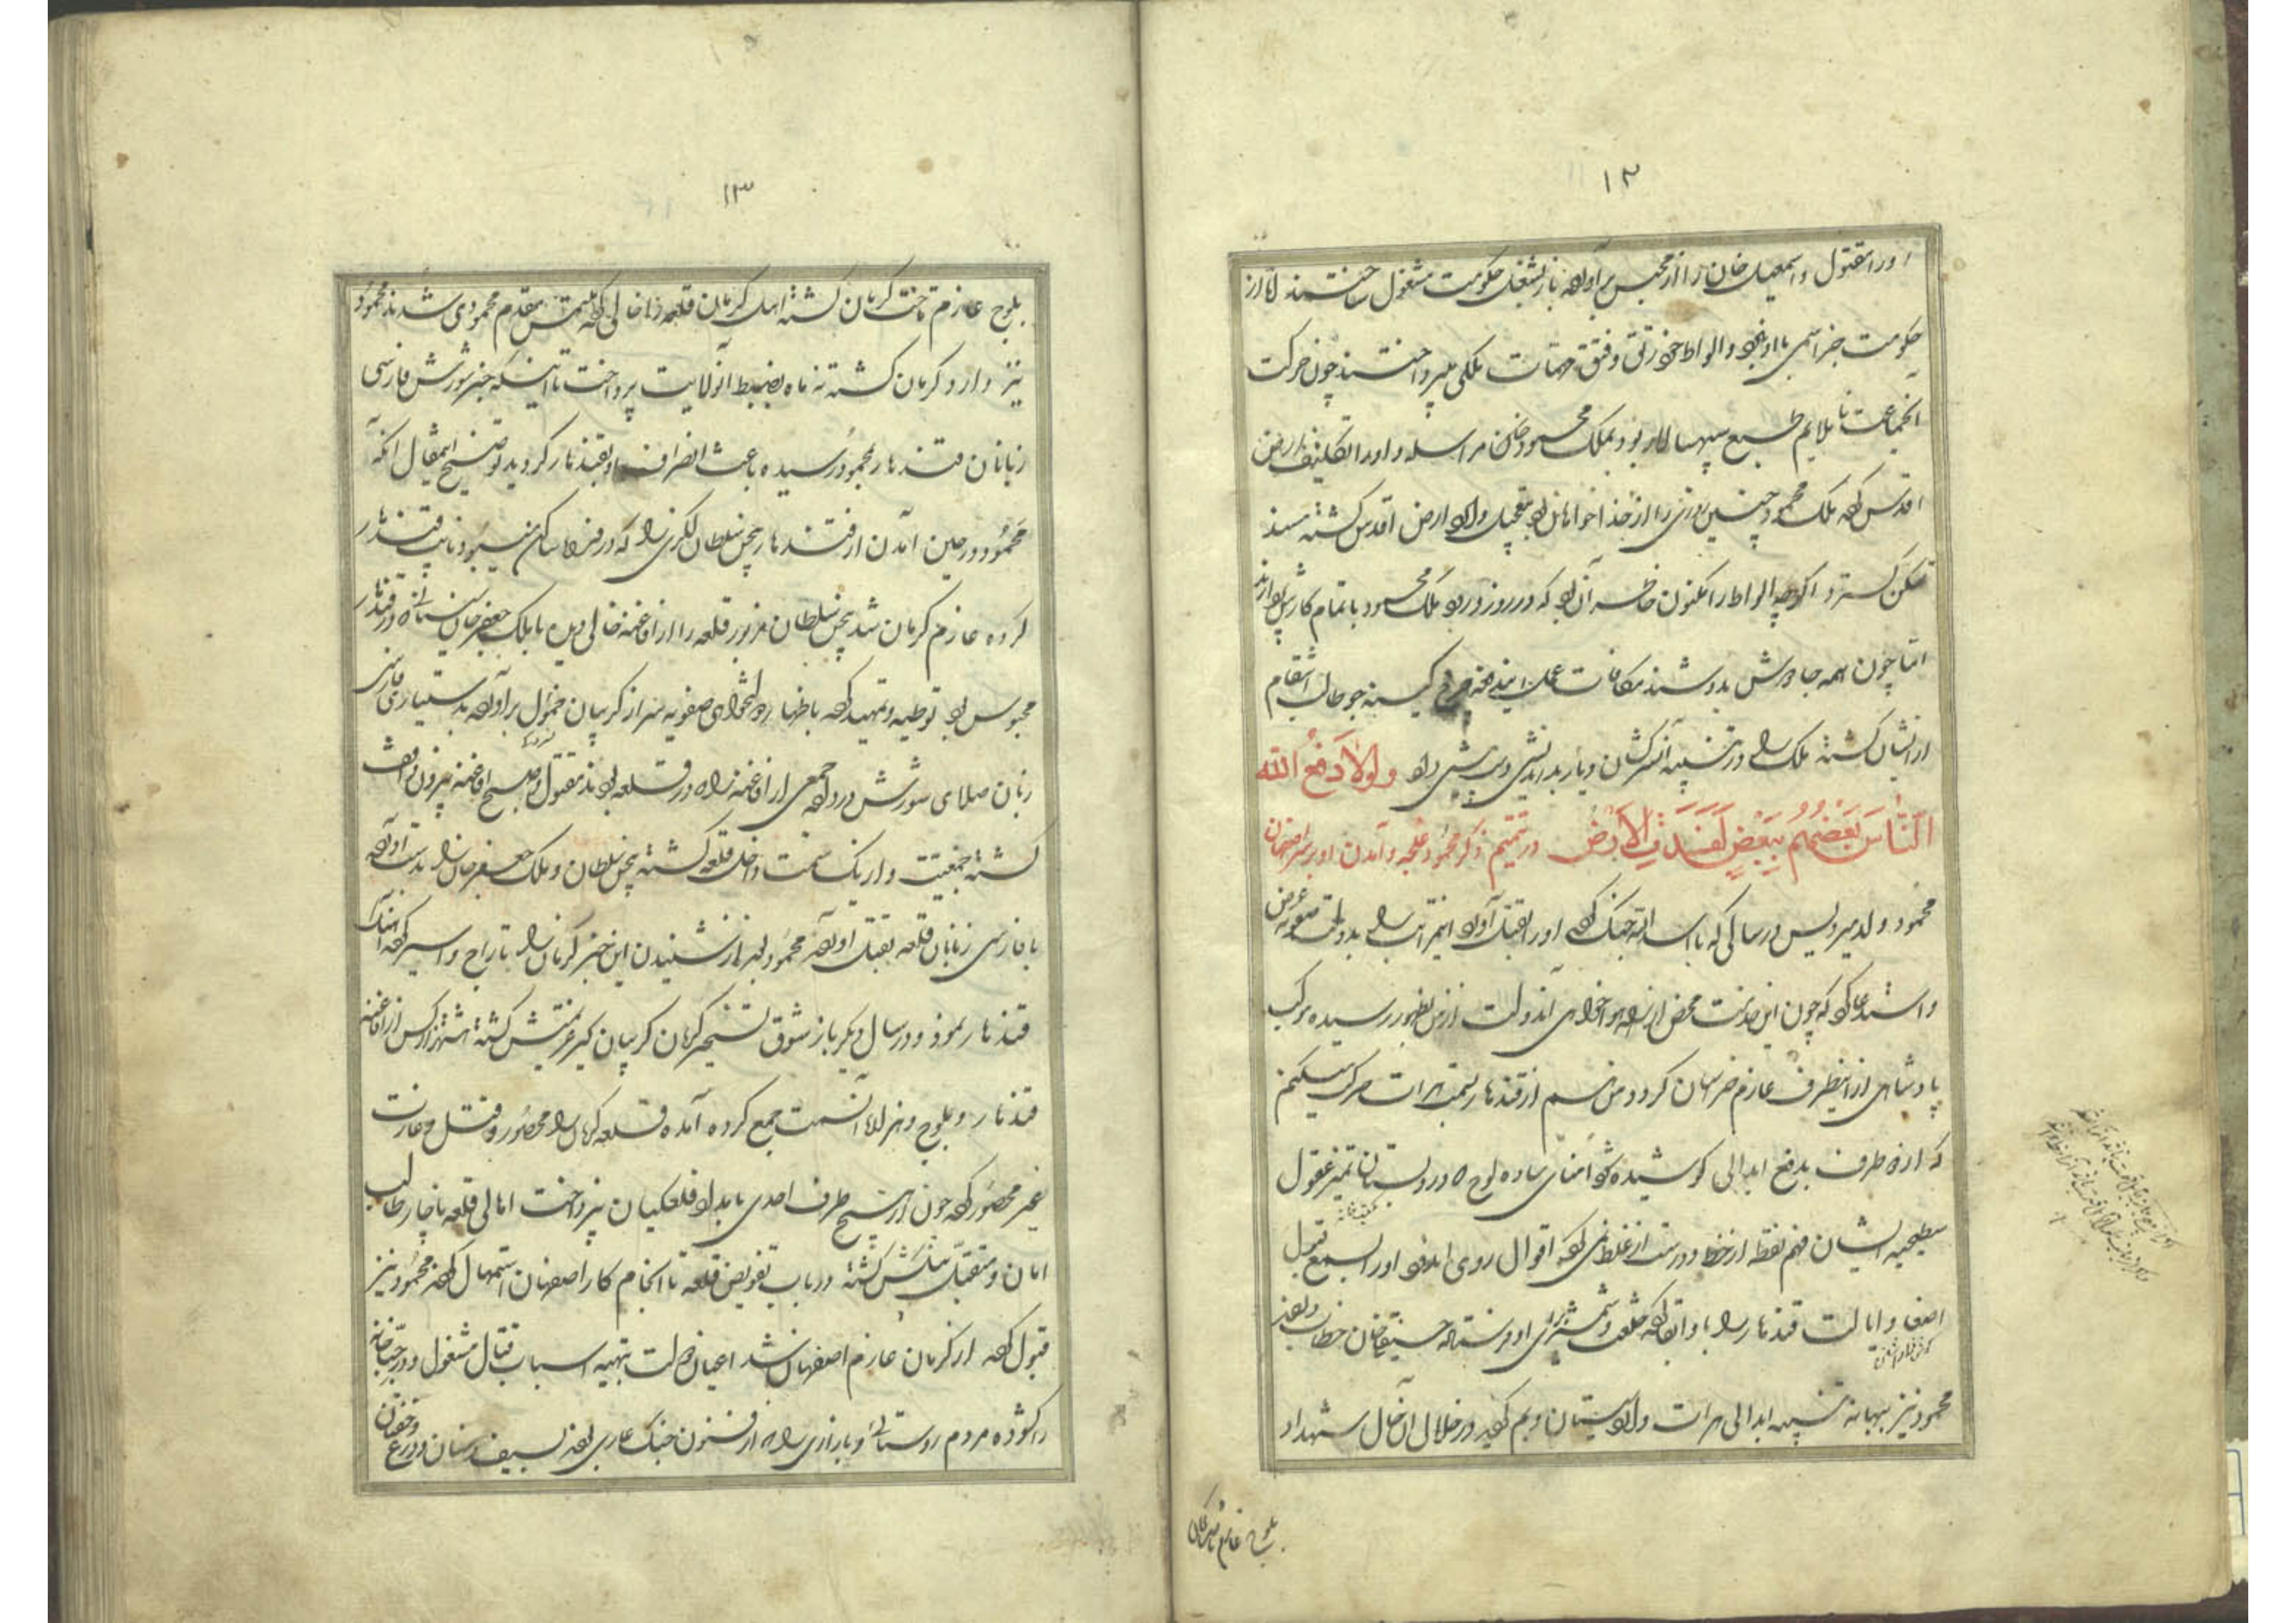 ۱۲
او را مقتول و اسمعیل خان را از محبس برآورده باز بشغل حکومت مشغول ساختند اما از
حکومت جز اسمی با او نبود و الواط خود برتق و فتق مهمات ملکی میپرداختند چون حرکت
آنجماعت ناملایم طبع سپهسالار بود بملک محمود خان مراسله و او را تکلیف بارض
اقدس کرد ملک محمود چنین روزی را از خدا خواهان بود بتعجیل وارد ارض اقدس گشته مسند
تمکن گسترد اگرچه الواط را مکنون خاطر آن بود که در روز ورود ملک محمود باتمام کارش پردازند
اما چون همه جا درش بدوشند مکافات عمل کینه جو طالب انتقام
از ایشان گشته ملک را در تنبیه آن سرکشان و بار بداندیشی دست پیشی داد ولولا دفع الله
الناس بعضهم ببعض لفسدت الارض در تتمیم ذکر محمود غلجه و آمدن او بر سر اصفهان
محمود ولد میرویس در سالی که با اسدالله جنگ کرده او را بقتل آورد این مراتب را بدولت صفویه عرض
و استدعا کرد که چون این خدمت محض از راه هواخواهی آندولت از من بظهور رسیده موکب
پادشاهی از اینطرف عازم خراسان گردد من هم از قندهار بسمت هرات حرکت میکنم
که از دو طرف بدفع ابدالی کوشیده شود امنای ساده لوح که در دبستان تمیز عقول
سطحیه ایشان فهم نقطه از خط و درست از غلط نمیکرد اقوال روی اندود او را بسمع قبول
اصغا و ایالت قندهار را با و ابقا کرده خلعت و شمشیر برای او فرستاده حسینقلیخان خطاب دادند
محمود نیز ببهانه تنبیه ابدالی هرات وارد سیستان و بم گردید در خلال آن حال شهداد
بلوچ عازم تاخت کرمان
۱۳
بلوچ عازم تاخت کرمان گشته اهل کرمان قلعه را خالی کرده ملتمس مقدم محمودی شدند محمود
نیز وارد کرمان گشته نه ماه بضبط آنولایت پرداخت تا اینکه خبر شورش فارسی
زبانان قندهار بمحمود رسیده باعث انصراف او بقندهار گردید توضیح اینمقال آنکه
محمود در حین آمدن از قندهار بیجن سلطان لکزی را که در فراه ساکن میبود نایب قندهار
کرده عازم کرمان شد بیجن سلطان مزبور قلعه را از افاغنه خالی دیده با ملک جعفر خان سیستانی که در قندهار
محبوس بود توطیه و تمهید کرده باظهار دولتخواهی صفویه سر از گریبان خمول برآورده بدستیاری فارسی
زبان صلای شورش در داده جمعی از افاغنه را که در قلعه بودند مقتول و صبح افاغنه بیرون واقف
گشته جمعیت و از یک سمت داخل قلعه گشته بیجن سلطان و ملک جعفر خان را بدست آورده
با فارسی زبانان قلعه بقتل آورده محمود بعد از شنیدن این خبر کرمان را تاراج و اسیر کرده آهنگ
قندهار نمود و در سال دیگر باز شوق تسخیر کرمان گریبان گیر عزیمتش گشته هشت هزار کس از افاغنه
قندهار و بلوچ و هزاره آنسمت جمع کرده آمده قلعه کرمان را محصور و قتل و غارت
غیر محصور کرده چون از هیچ طرف احدی بامداد قلعگیان نپرداخت اهالی قلعه ناچار طالب
امان و متقبل پیشکش گشته در باب تفویض قلعه تا انجام کار اصفهان استمهال کردند محمود نیز
قبول کرده از کرمان عازم اصفهان شد اعیان دولت بتهیه اسباب قتال مشغول و در جباخانه
را گشوده مردم روستائی و بازاری را که از فنون جنگ عاری بودند بسیف و سنان و درع و خفتان